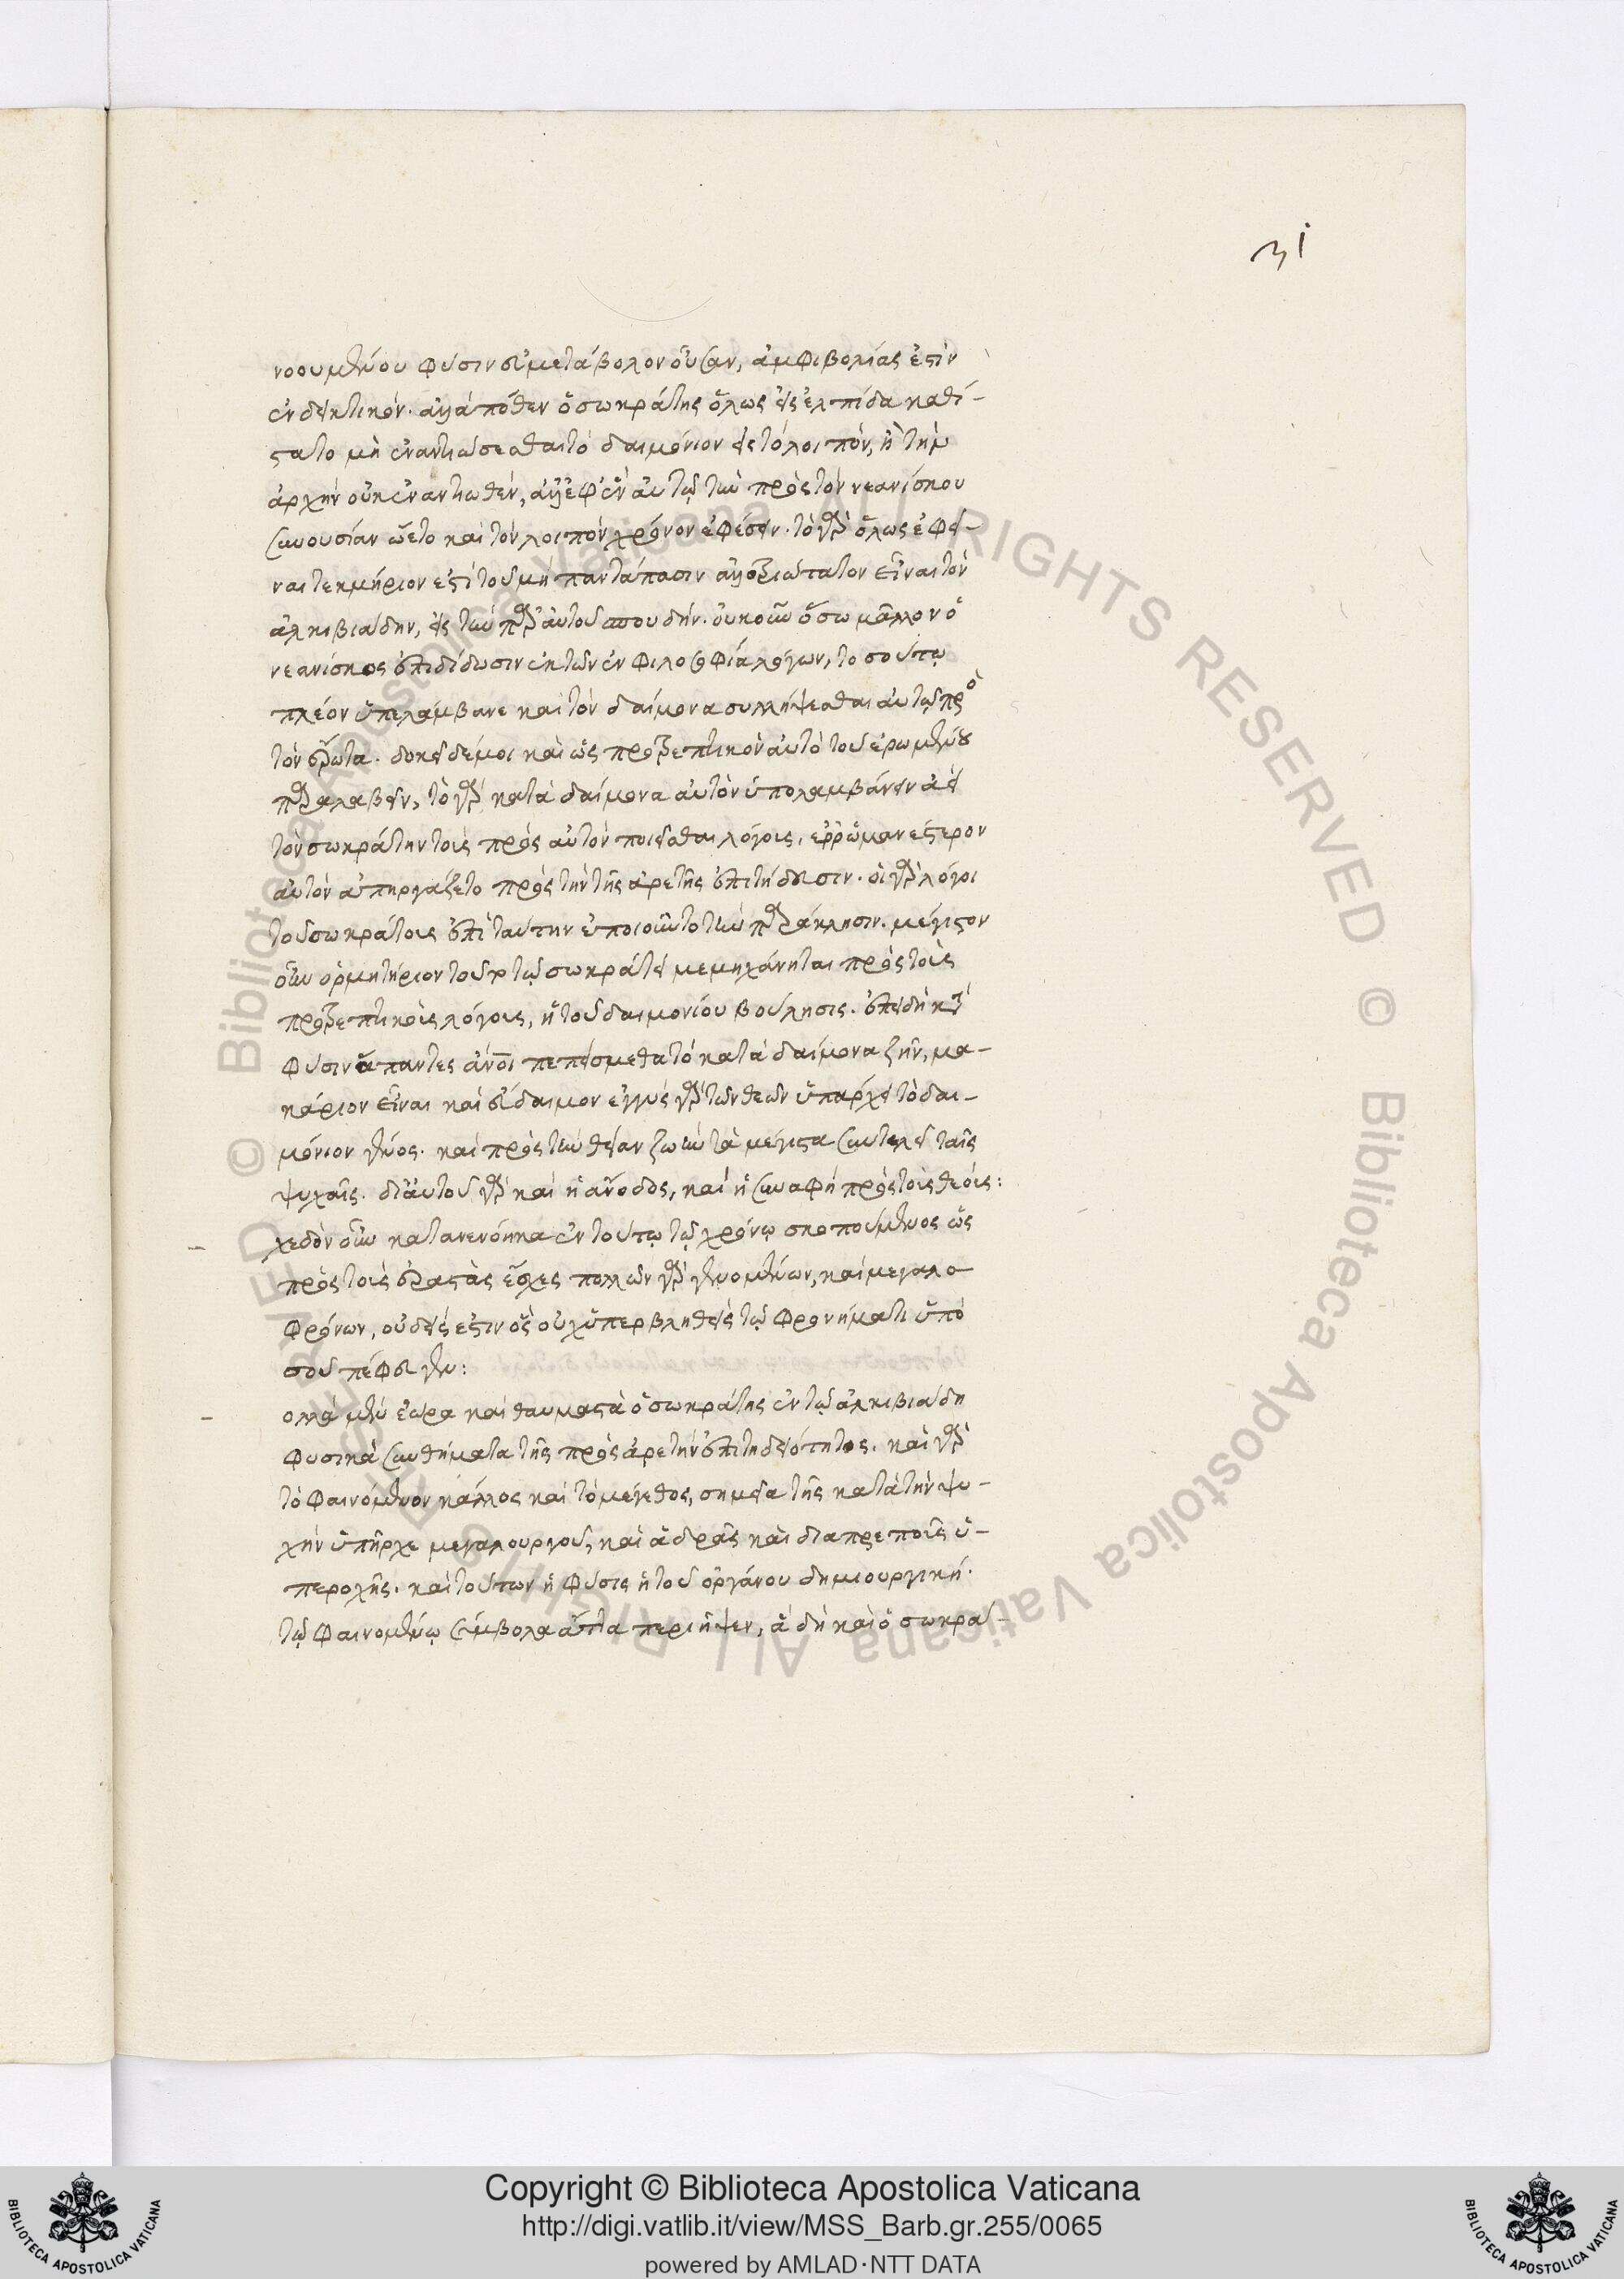 31
νοουμένου φύσιν εὐμετάβολον οὖσαν, ἀμφιβολίας ἐστὶν
ἐνδεικτικόν. ἀλλὰ πόθεν ὁ σωκράτης ὅλως εἰς ἐλπίδα καθί-
στατο μὴ ἐναντιώσεσθαι τὸ δαιμόνιον εἰς τὸ λοιπόν, ἢ τὴν
ἀρχὴν οὐκ ἐναντιωθέν, ἀλλ' ἐφ' ἓν αὐτῷ τὴν πρὸς τὸν νεανίσκου
συνουσίαν ᾤετο καὶ τὸν λοιπὸν χρόνον ἐφέσειν. τὸ γὰρ ὅλως ἐφεῖ-
ναι τεκμήριον ἐστὶ τοῦ μὴ παντάπασιν ἀλλοτριώτατον εἶναι τὸν
ἀλκιβιάδην, εἰς τὴν παρ' αὐτοῦ σπουδήν. οὐκοῦν ὅσω μᾶλλον ὁ
νεανίσκος ἐπιδίδωσιν ἐκ τῶν ἐν φιλοσοφία λόγων, τοσούτῳ
πλέον ὑπελάμβανε καὶ τὸν δαίμονα συλλήψεσθαι αὐτῷ πρὸ
τὸν ἔρωτα. δοκεῖ δέ μοι καὶ ὡς προτρεπτικὸν αὐτὸ τοῦ ἐρωμένου
παραλαβεῖν, τὸ γὰρ κατὰ δαίμονα αὐτὸν ὑπολαμβάνειν ἀεὶ
τὸν σωκράτην τοὺς πρὸς αὐτὸν ποιεῖσθαι λόγους, ἐρρωμενέστερον
αὐτὸν ἀπηργάζετο πρὸς τὴν τῆς ἀρετῆς ἐπιτήδευσιν. οἱ γὰρ λόγοι
τοῦ σωκράτους ἐπὶ ταύτην ἐποιοῦντο τὴν παράκλησιν. μέγιστον
οὖν ὁρμητήριον τοῦτο τῷ σωκράτει μεμηχάνηται πρὸς τοὺς
προτρεπτικοὺς λόγους, ἡ τοῦ δαιμονίου βούλησις. ἐπειδὴ κατὰ
φύσιν ἅπαντες ἄνοι πεπείσμεθα τὸ κατὰ δαίμονα ζῆν, μα-
κάριον εἶναι καὶ εὔδαιμον ἐγγὺς γὰρ τῶν θεῶν ὑπάρχει τὸ δαι-
μόνιον γένος. καὶ πρὸς τὴν θείαν ζωὴν τὰ μέγιστα συντελεῖ ταῖς
ψυχαῖς. δι' αὐτοῦ γὰρ καὶ ἡ ἄνοδος, καὶ ἡ συναφὴ πρὸς τοὺς θεούς:
χεδὸν οὖν κατανενόηκα ἐν τούτῳ τῷ χρόνῳ σκοπούμενος ὡς
πρὸς τοὺς ἐραστὰς ἔσχες πολλῶν γὰρ γενομένων, καὶ μεγαλο
φρόνων, οὐδείς ἐστιν ὃς οὐχ ὑπερβληθεὶς τῷ φρονήματι ὑπὸ
σοῦ πέφευγεν:
ολλὰ μὲν ἑώρα καὶ θαυμαστὰ ὁ σωκράτης ἐν τῷ ἀλκιβιάδη
φυσικὰ συνθήματα τῆς πρὸς ἀρετὴν ἐπιτηδειότητος. καὶ γὰρ
τὸ φαινόμενον κάλλος καὶ τὸ μέγεθος, σημεῖα τῆς κατὰ τὴν ψυ-
χὴν ὑπῆρχε μεγαλουργοῦ, καὶ ἁδρᾶς καὶ διαπρεποῦς ὑ-
περοχῆς. καὶ τούτων ἡ φύσις ἡ τοῦ ὀργάνου δημιουργική.
τῷ φαινομένῳ σύμβολα ἄττα περιῆψεν, ἃ δὴ καὶ ὁ σωκρά-
Copyright © Biblioteca Apostolica Vaticana
http://digi.vatlib.it/view/MSS_Barb.gr.255/0065
powered by AMLAD·NTT DATA
BIBLIOTECA APOSTOLICA VATICANA
BIBLIOTECA APOSTOLICA VATICANA
© Biblioteca Apostolica Vaticana ALL RIGHTS RESERVED © Biblioteca Apostolica Vaticana ALL RIGHTS RESERVED